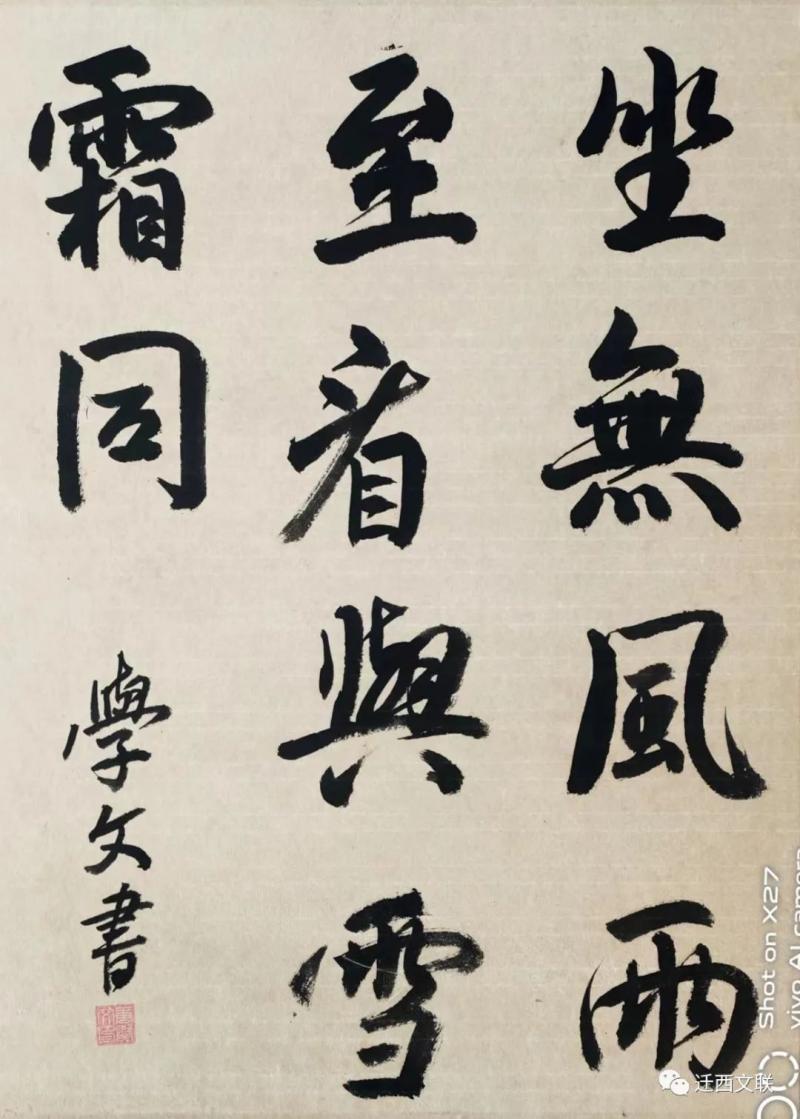 坐無風雨
至看與雪
霜同
學文書
Shot on X27
vivo AI camera
迁西文联